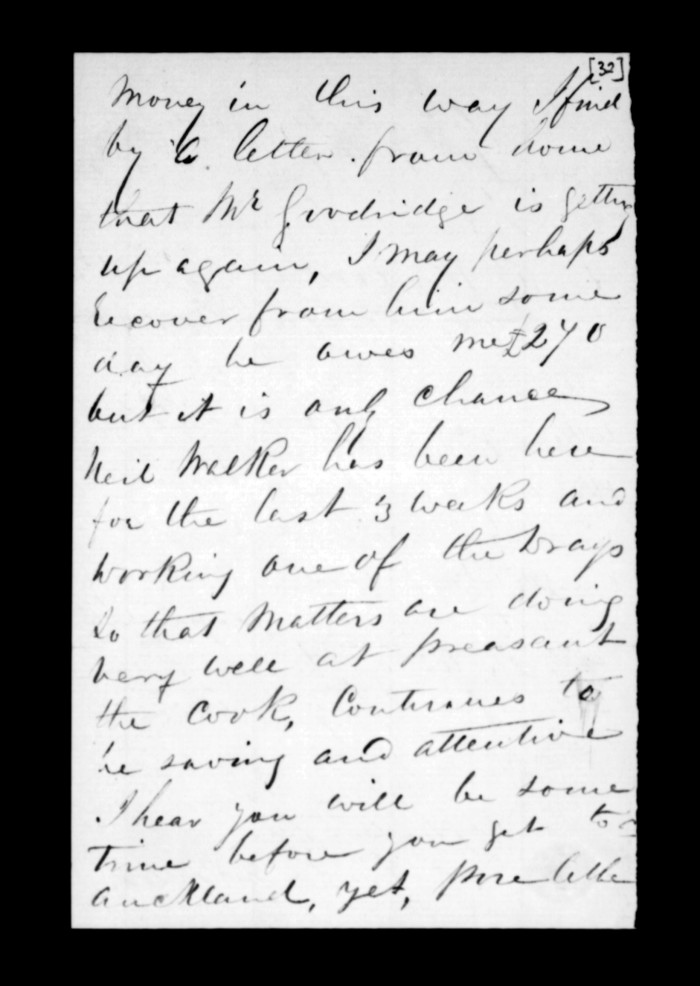 [32]
Money in this way I find
by a letter from home
that Mr Goodridge is getting
up again, I may perhaps
recover from him some
day he owes me £270
but it is only chance
Neil Walker has been here
for the last 3 weeks and
working one of the Drays
so that Matters are doing
very well at preasant
the Cook, Continues to
be saving and attentive
I hear you will be some
time before you get to
Auckland, yet,